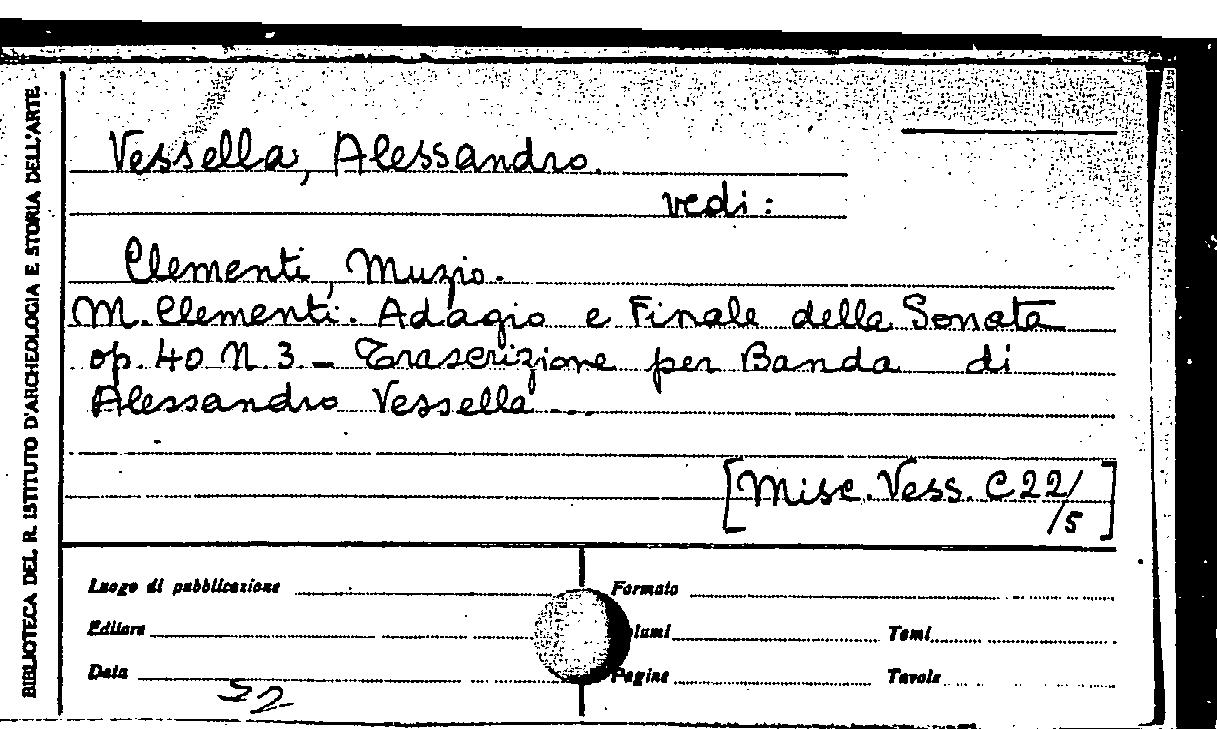 BIBLIOTECA DEL R. ISTITUTO D'ARCHEOLOGIA E STORIA DELL'ARTE
Vessella, Alessandro.
vedi:
Clementi, Muzio.
M. Clementi. Adagio e Finale della Sonata
op. 40 N. 3. - Trascrizione per Banda di
Alessandro Vessella ...
[Misc. Vess. C 22/
/5]
Luogo di pubblicazione
Formato
Editore
Tomi
Data
Pagine
Tavole
52